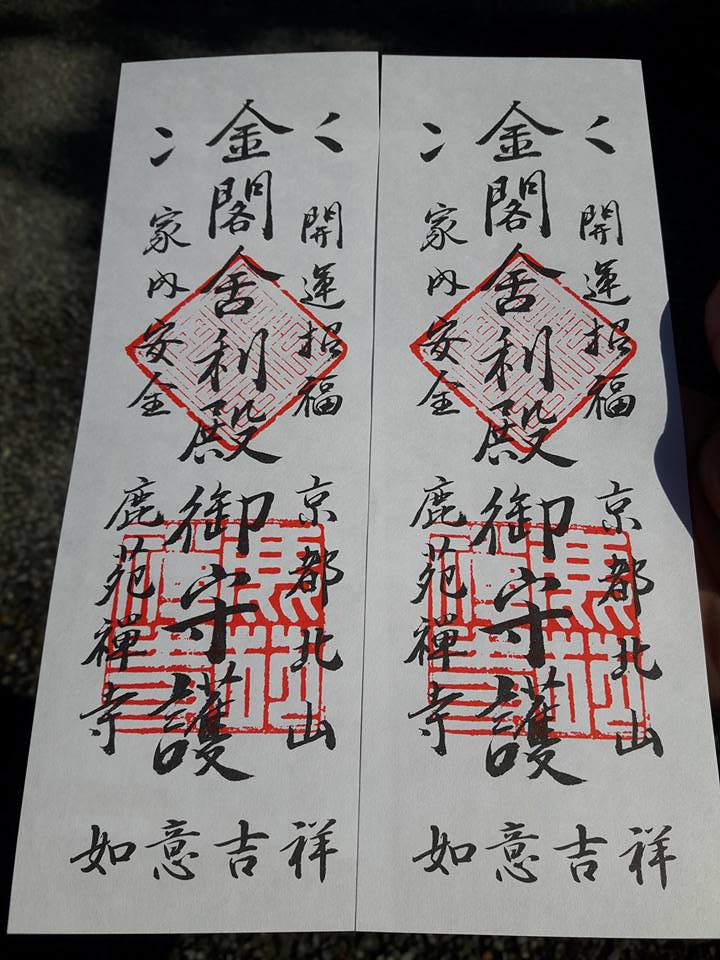 開運招福
京都北山
金閣舍利殿御守護
家内安全
鹿苑禪寺
如意吉祥
開運招福
京都北山
金閣舍利殿御守護
家内安全
鹿苑禪寺
如意吉祥